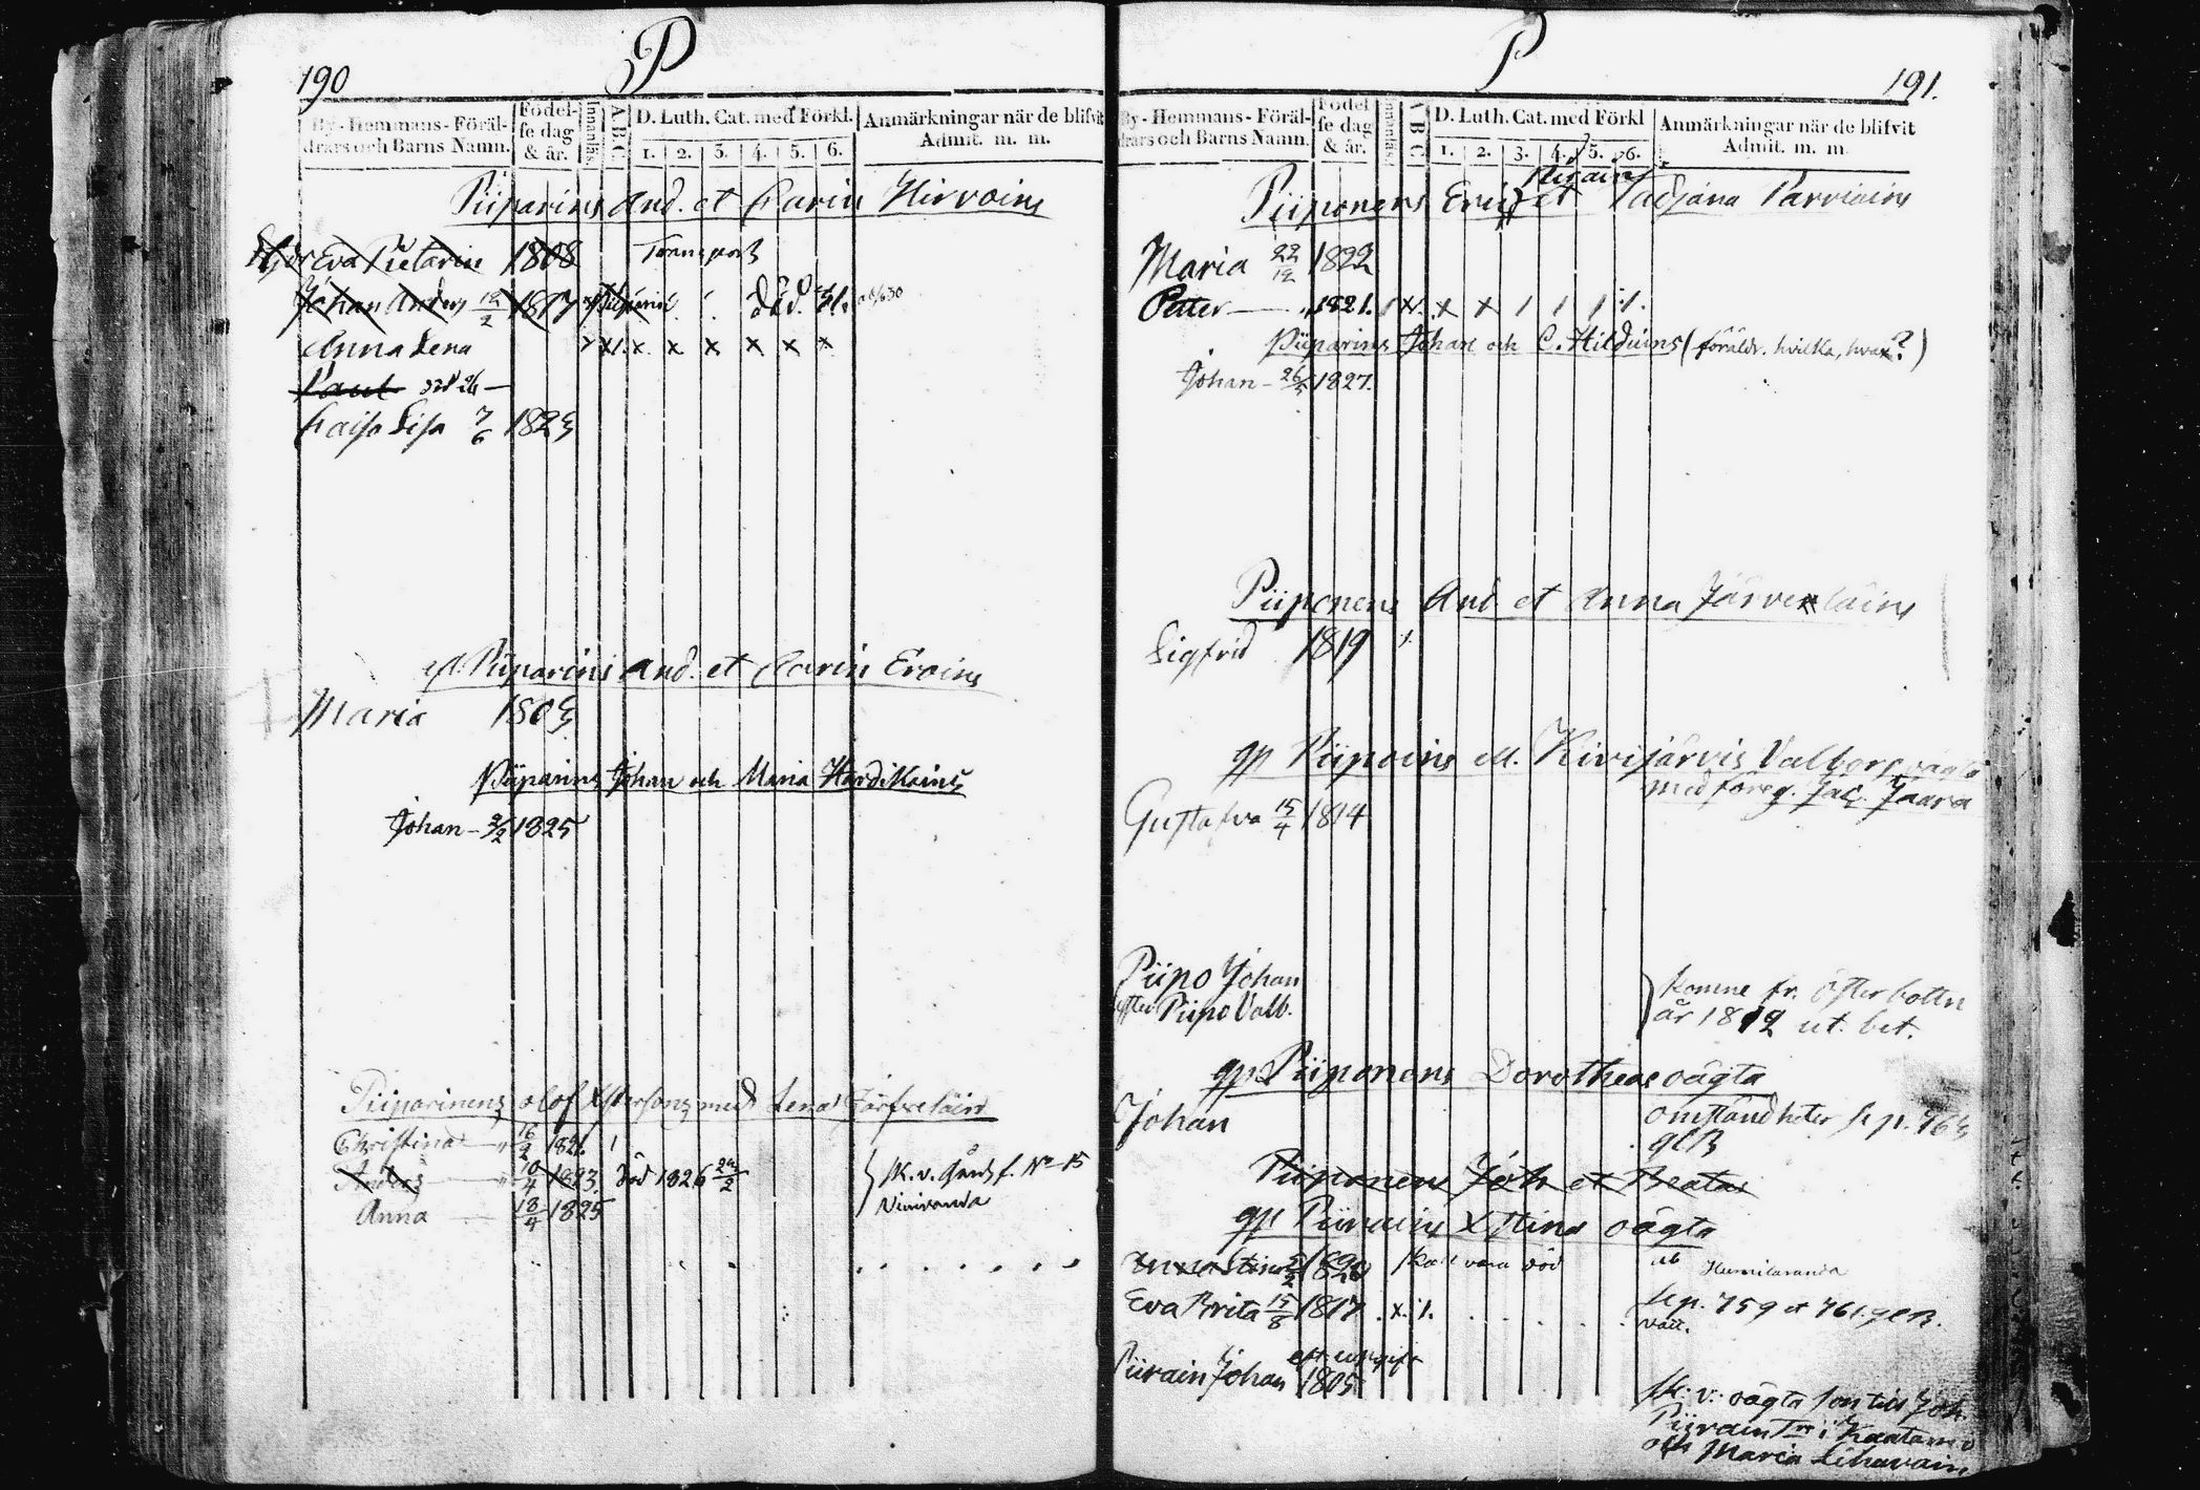 190
P
By-Hemmans-Föräl-
drars och Barns Namn.
Födel-
se dag
& år.
Innanläs.
A B C
D. Luth. Cat. med Förkl.
1. 2. 3. 4. 5. 6.
Anmärkningar när de blifvit
Admit. m. m.
Piiparins And. et Carin Hirvoins
Eva Pietarin 1808 Transport
Johan Anders 12/2 1817 död
Anna Lena x x x x x x
Paul död 26 —
Caisa Lisa 7/6 182
Piiparins And. et Carin Eroins
Maria 180
Piiparins Johan och Maria Hardikains
Johan – 3/2 1825
Piiparinens Olof med Lena
Christina — 16/2 182
Anders — 10/4 1823. död 1826 24/2
Anna — 18/4 1825
sk. v. f. No 15
Niniranda
P
191.
By-Hemmans-Föräl-
drars och Barns Namn.
Födel
se dag
& år.
Innanläs.
A B C
D. Luth. Cat. med Förkl
1. 2. 3. 4. 5. 6.
Anmärkningar när de blifvit
Admit. m. m
Piiponens Eric et Tadjana Parviains
Maria 22/12 1822
Petter — " 1821.
Piiparins Johan och C. Hilduins (föräldr. hvilka, hvar?)
Johan – 1827.
Piiponens And et Anna Järveläins
Sigfrid 1819
gp Piipoins ell. Kivijärvis Valborg oägta
med föreg. Jac. Jaara
Gustafva 15/4 1814
Piipo Johan
Syster Piipo Valb.
komne fr. Österbottn
år 1812 ut. bet.
gp. Piiponens Dorotheae oägta
Johan
omständheter se p.
glB
Piiponens Joh et Beatas
gp Piirains Xstina oägta
Stina skall vara död
Humilaranda
Eva Brita 15/8 1817 . x. 1.
se p. 759 et 761. glB.
Piirain Johan 1805
eft. uppgift
sk. v. oägta son till Joh.
Piirain i Kaatamo
och Maria Lihavain